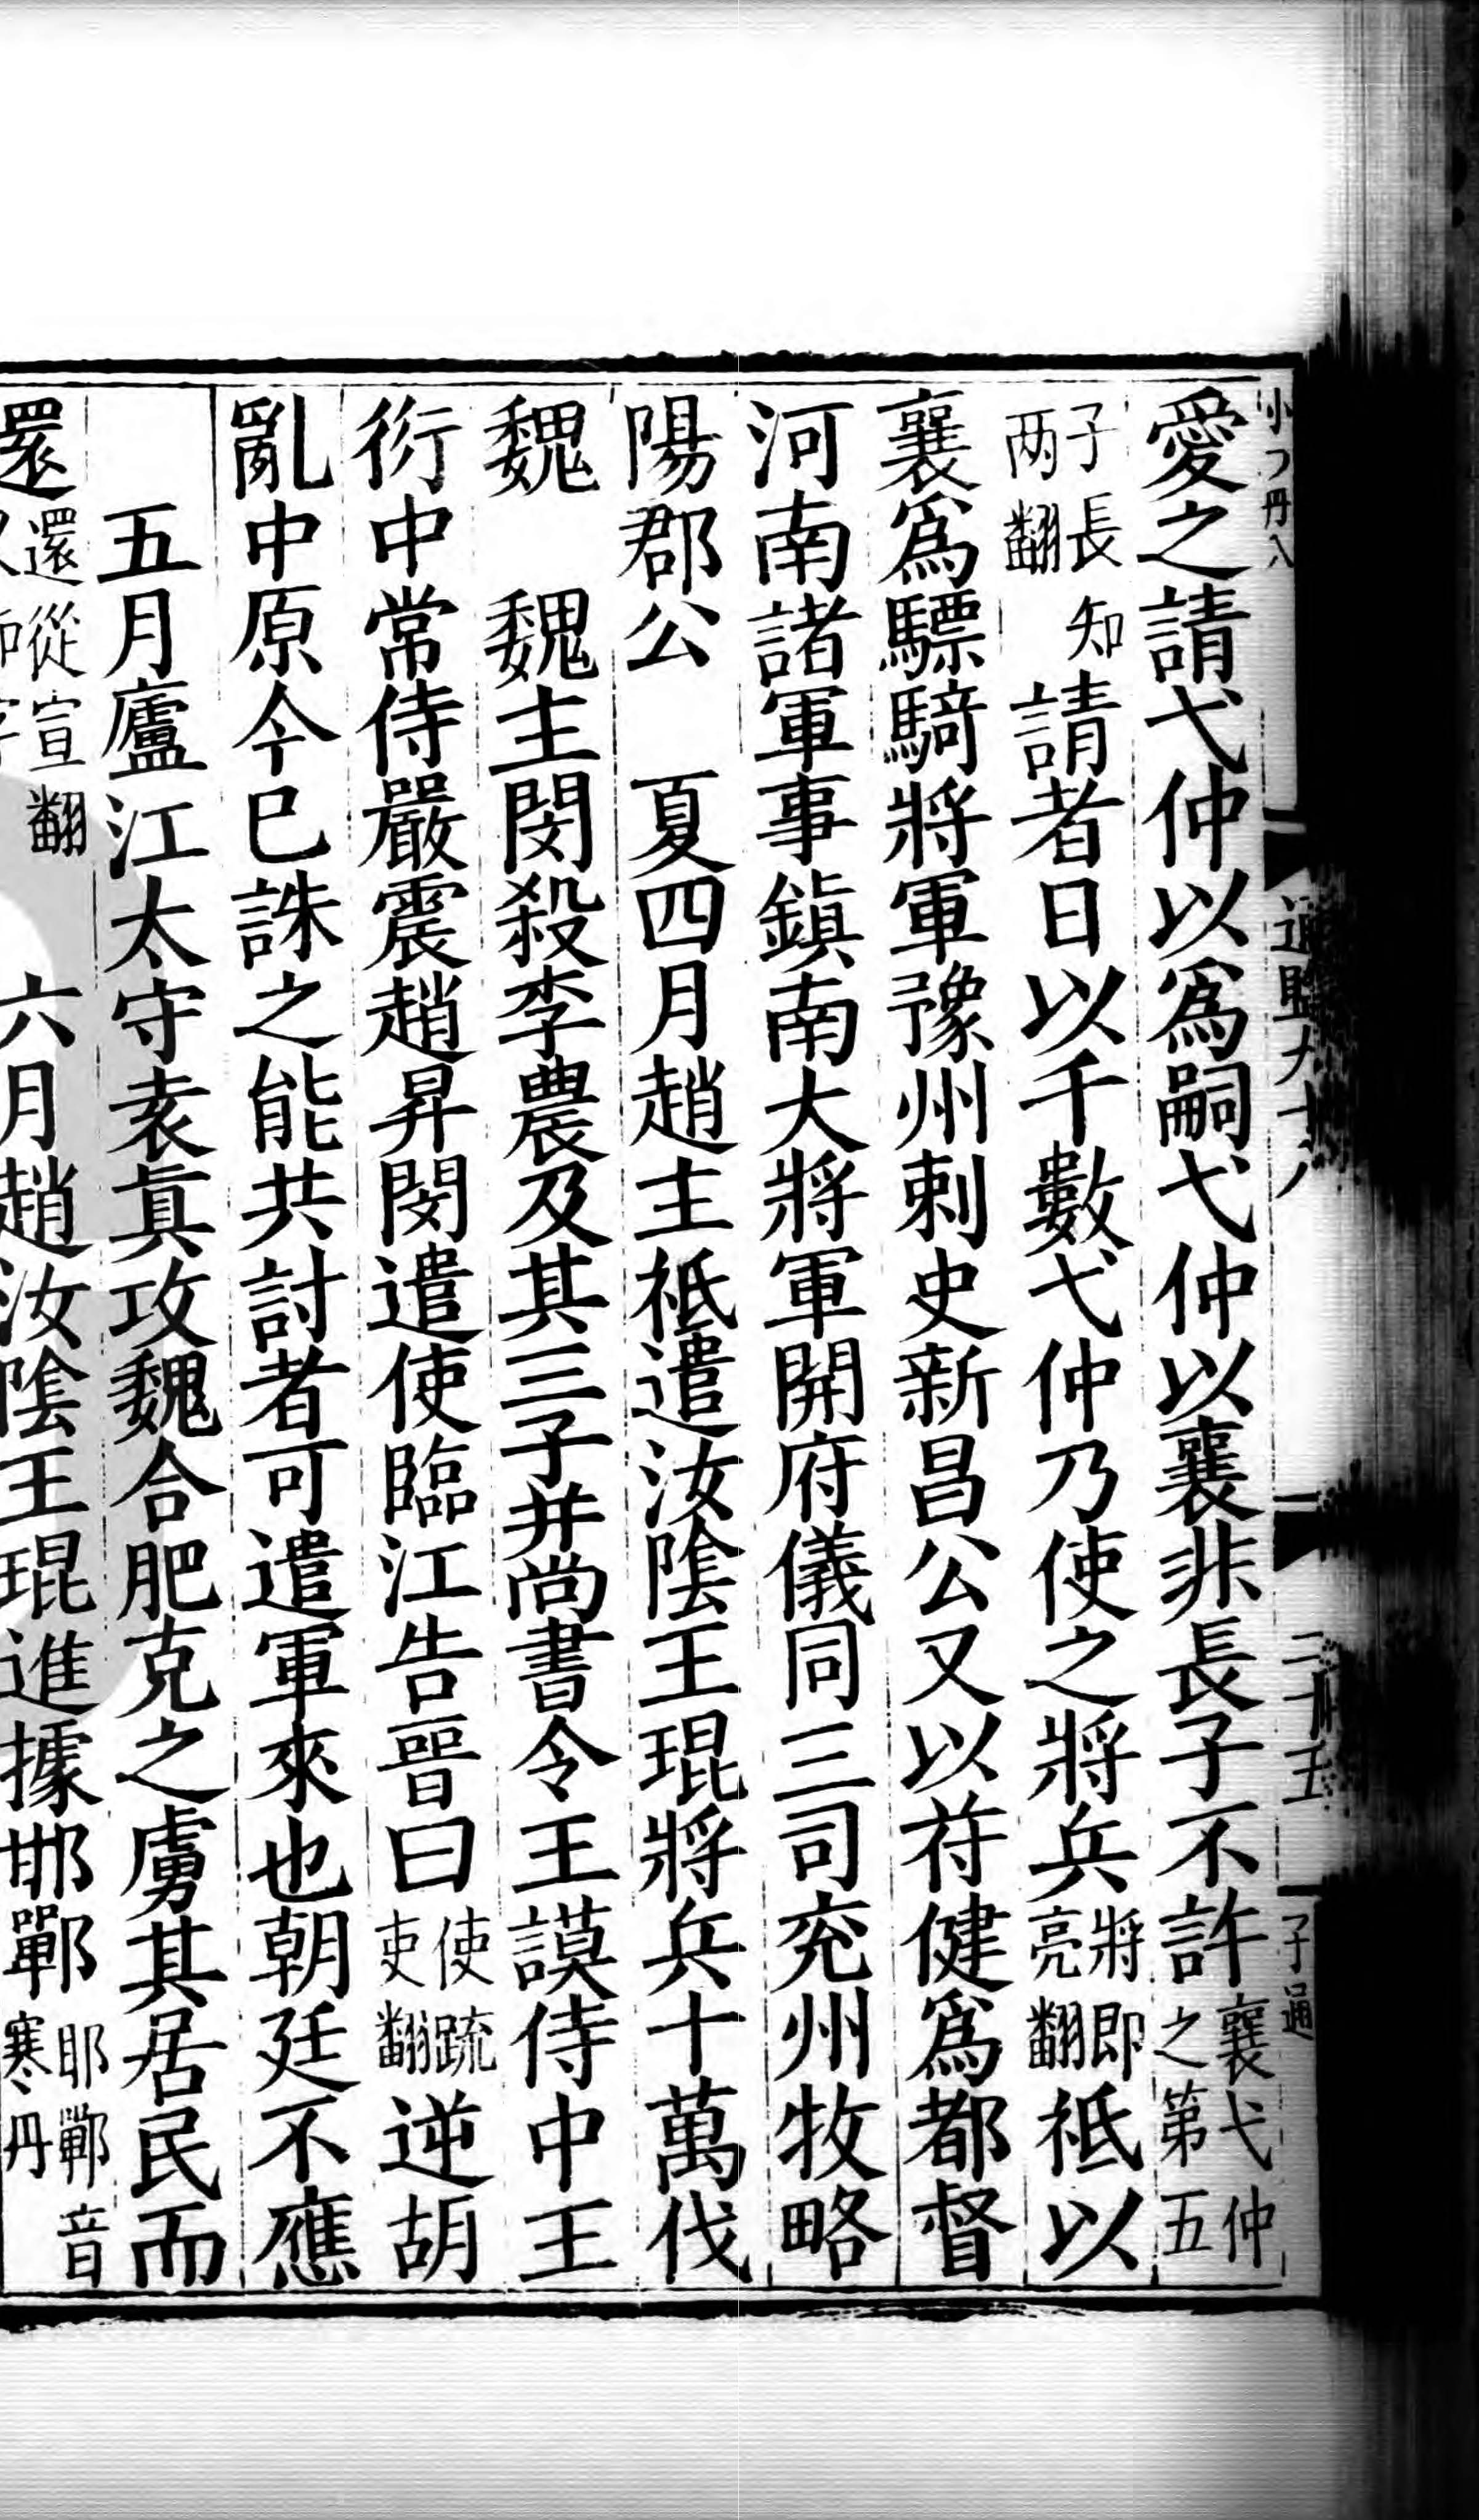 愛之請弋仲以爲嗣弋仲以襄非長子不許襄弋仲之第五
子長知两翻請者日以千數弋仲乃使之將兵將即亮翻祗以
襄爲驃騎將軍豫州刺史新昌公又以苻健爲都督
河南諸軍事鎮南大將軍開府儀同三司兖州牧略
陽郡公 夏四月趙主祗遣汝隂王琨將兵十萬伐
魏 魏主閔殺李農及其三子并尚書令王謨侍中王
衍中常侍嚴震趙昇閔遣使臨江告晉曰使疏吏翻逆胡
亂中原今已誅之能共討者可遣軍來也朝廷不應
五月廬江太守袁真攻魏合肥克之虜其居民而
還還從宣翻 六月趙汝隂王琨進據邯鄲邯鄲音寒丹